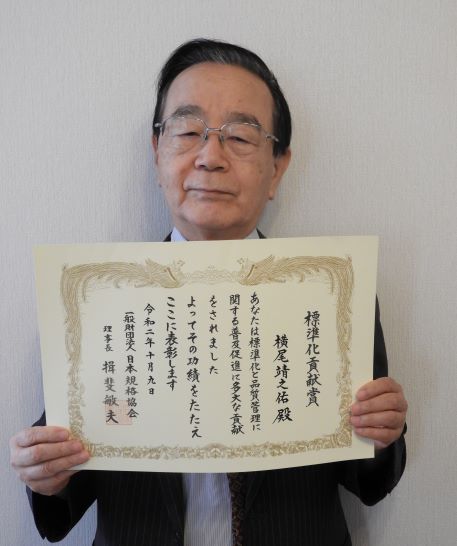 標準化貢献賞
横尾靖之佑 殿
あなたは標準化と品質管理に
関する普及促進に多大な貢献
をされました
よってその功績をたたえ
ここに表彰します
令和二年十月九日
一般財団法人 日本規格協会
理事長 揖斐敏夫